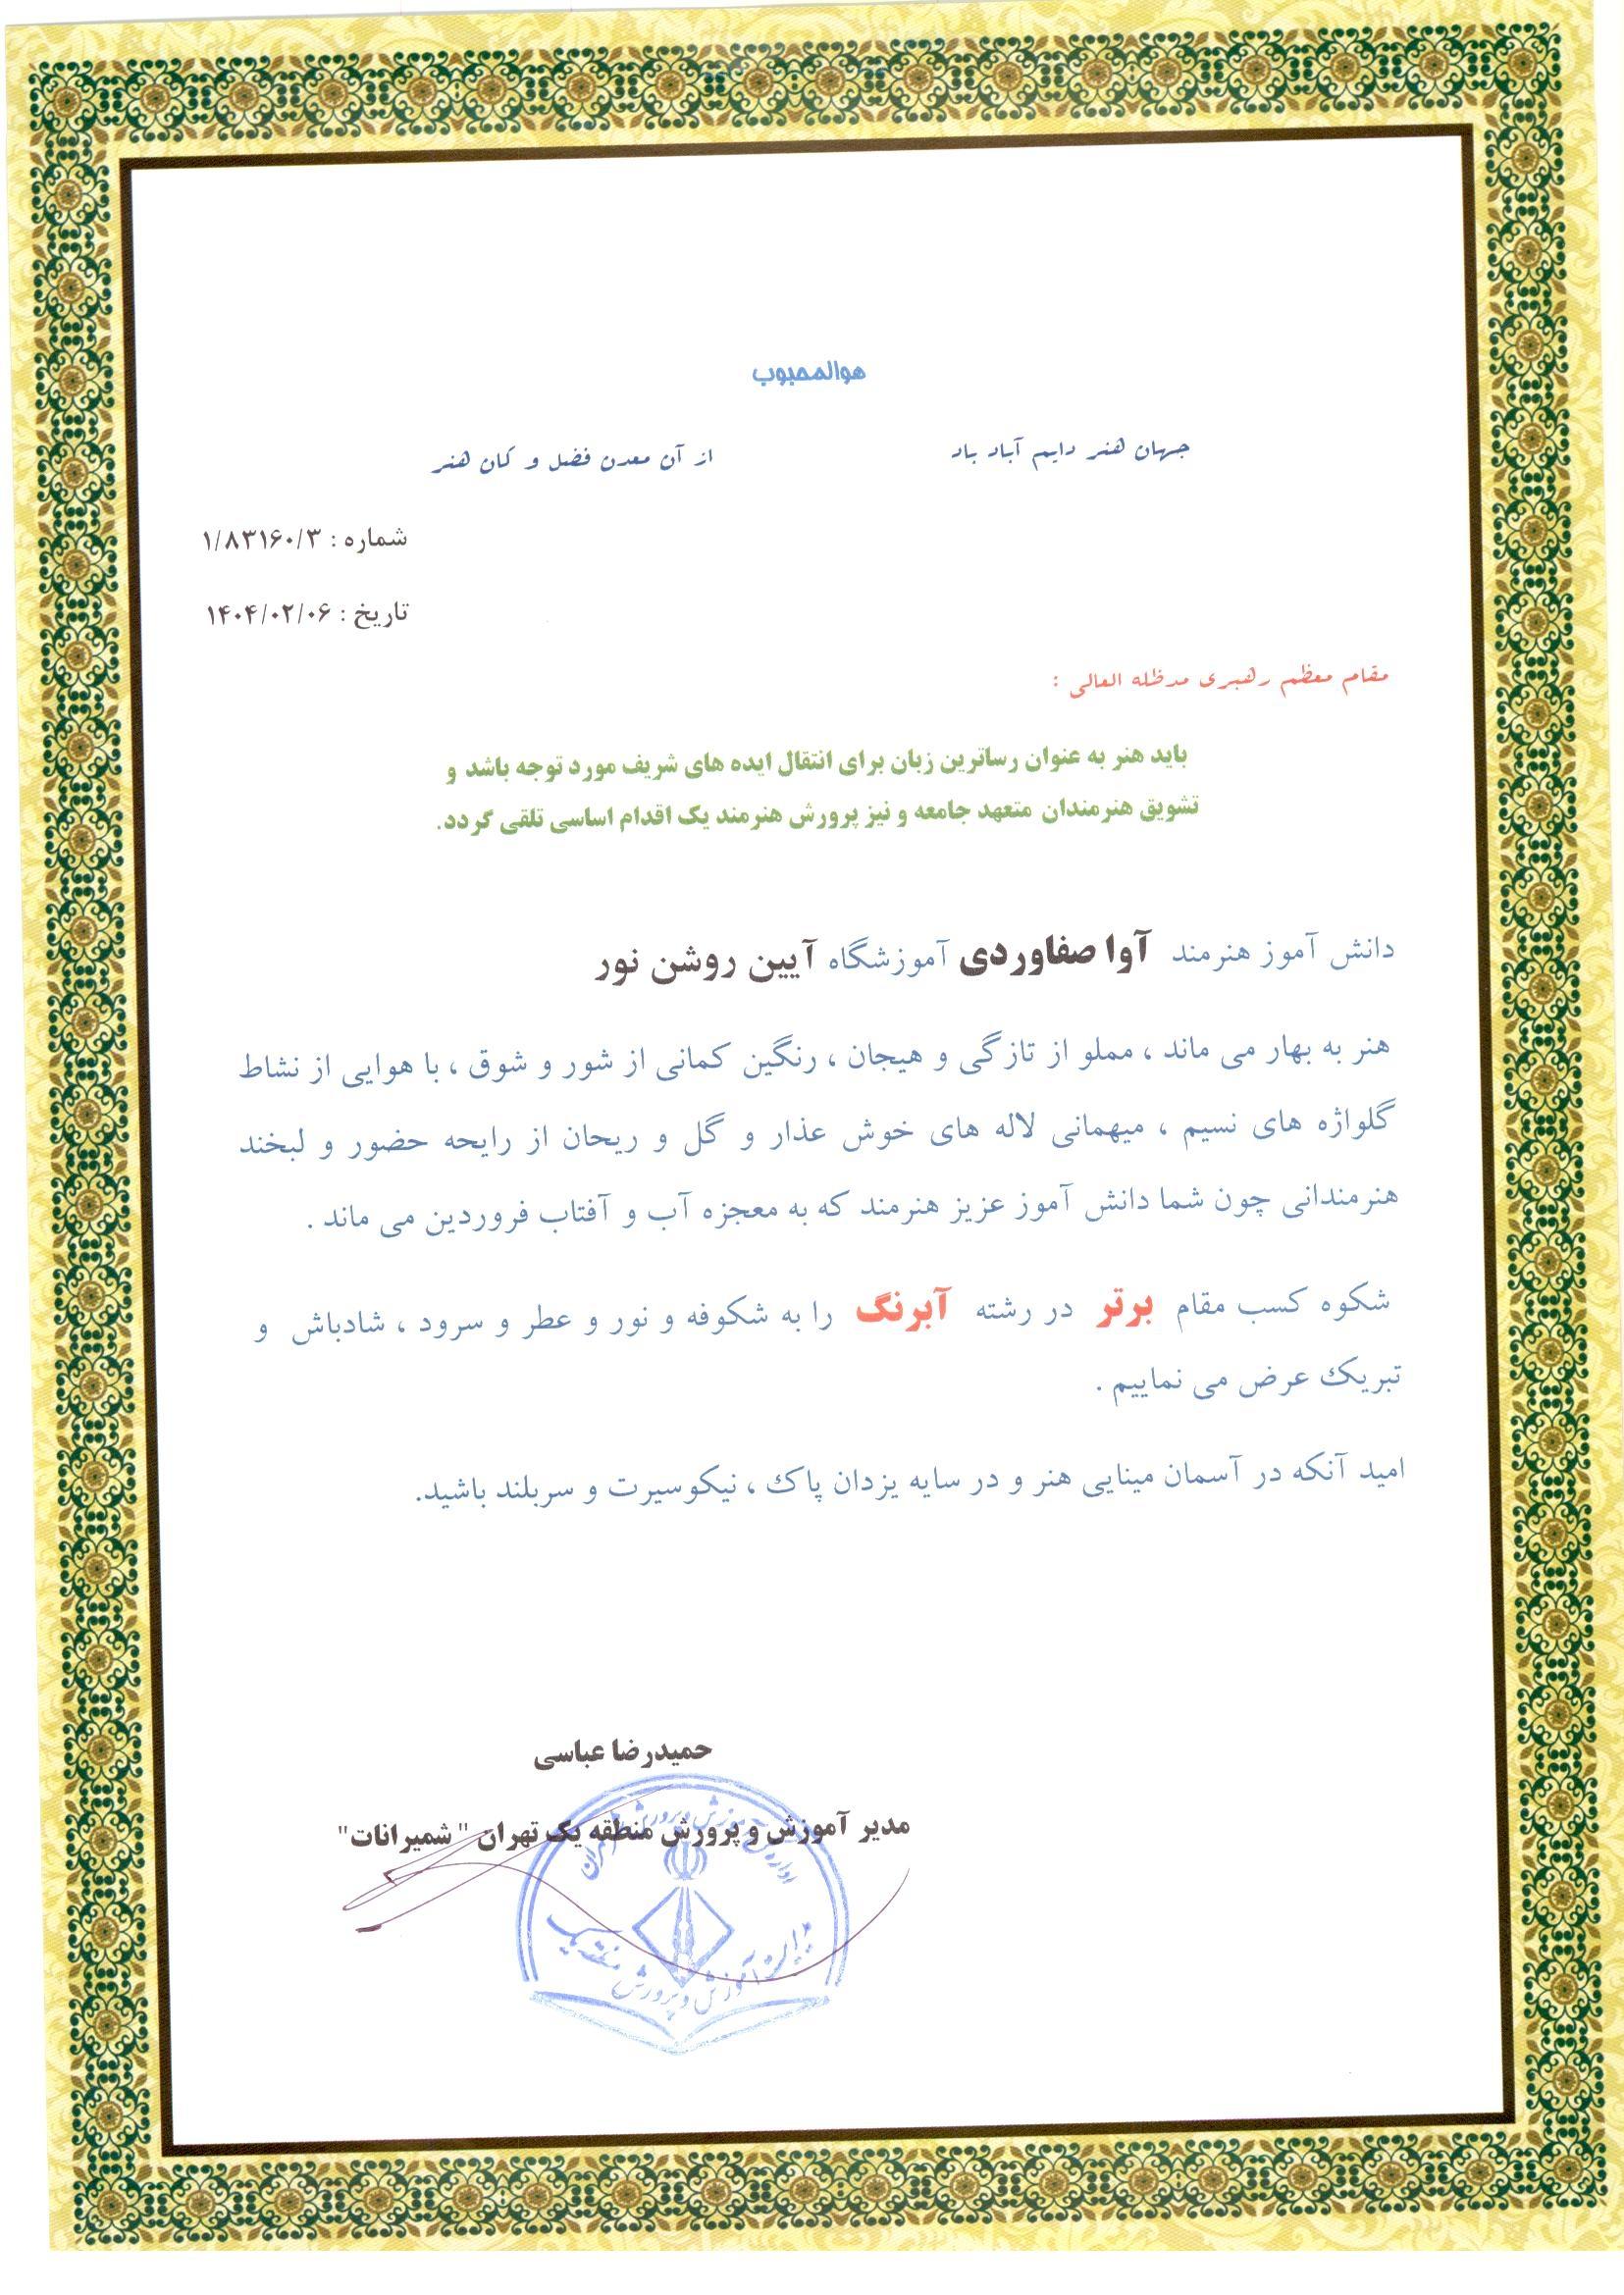 هوالمحبوب
جهان هنر دایم آباد باد از آن معدن فضل و کان هنر
شماره : ۱/۸۳۱۶۰/۳
تاریخ : ۱۴۰۴/۰۲/۰۶
مقام معظم رهبری مدظله العالی :
باید هنر به عنوان رساترین زبان برای انتقال ایده های شریف مورد توجه باشد و
تشویق هنرمندان متعهد جامعه و نیز پرورش هنرمند یک اقدام اساسی تلقی گردد.
دانش آموز هنرمند آوا صفاوردی آموزشگاه آیین روشن نور
هنر به بهار می ماند ، مملو از تازگی و هیجان ، رنگین کمانی از شور و شوق ، با هوایی از نشاط
گلواژه های نسیم ، میهمانی لاله های خوش عذار و گل و ریحان از رایحه حضور و لبخند
هنرمندانی چون شما دانش آموز عزیز هنرمند که به معجزه آب و آفتاب فروردین می ماند .
شکوه کسب مقام برتر در رشته آبرنگ را به شکوفه و نور و عطر و سرود ، شادباش و
تبریک عرض می نماییم .
امید آنکه در آسمان مینایی هنر و در سایه یزدان پاک ، نیکوسیرت و سربلند باشید.
حمیدرضا عباسی
مدیر آموزش و پرورش منطقه یک تهران " شمیرانات"
وزارت آموزش و پرورش